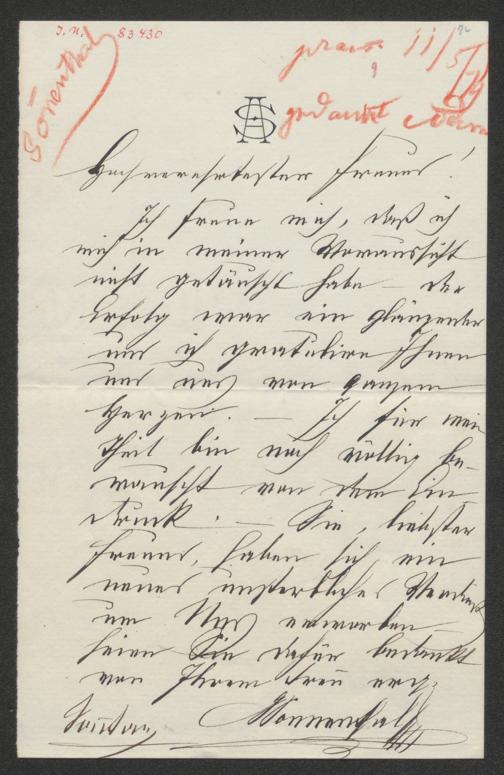 I. N. 83430
Sonnenthal
praes 11/5 79
gedankt
AS
Hochverehrtester Freund!
Ich freue mich, daß ich
mich in meiner Voraussicht
nicht getäuscht habe – der
Erfolg war ein glänzender
und ich gratulire Ihnen
und uns von ganzem
Herzen. – Ich für mein
Theil bin noch völlig be-
rauscht von dem Ein-
druck. – Sie, liebster
Freund, haben sich ein
neues unsterbliches Verdienst
um Uns erworben
seien Sie dafür bedankt
von Ihrem treu erg.
Sonntag Sonnenthal